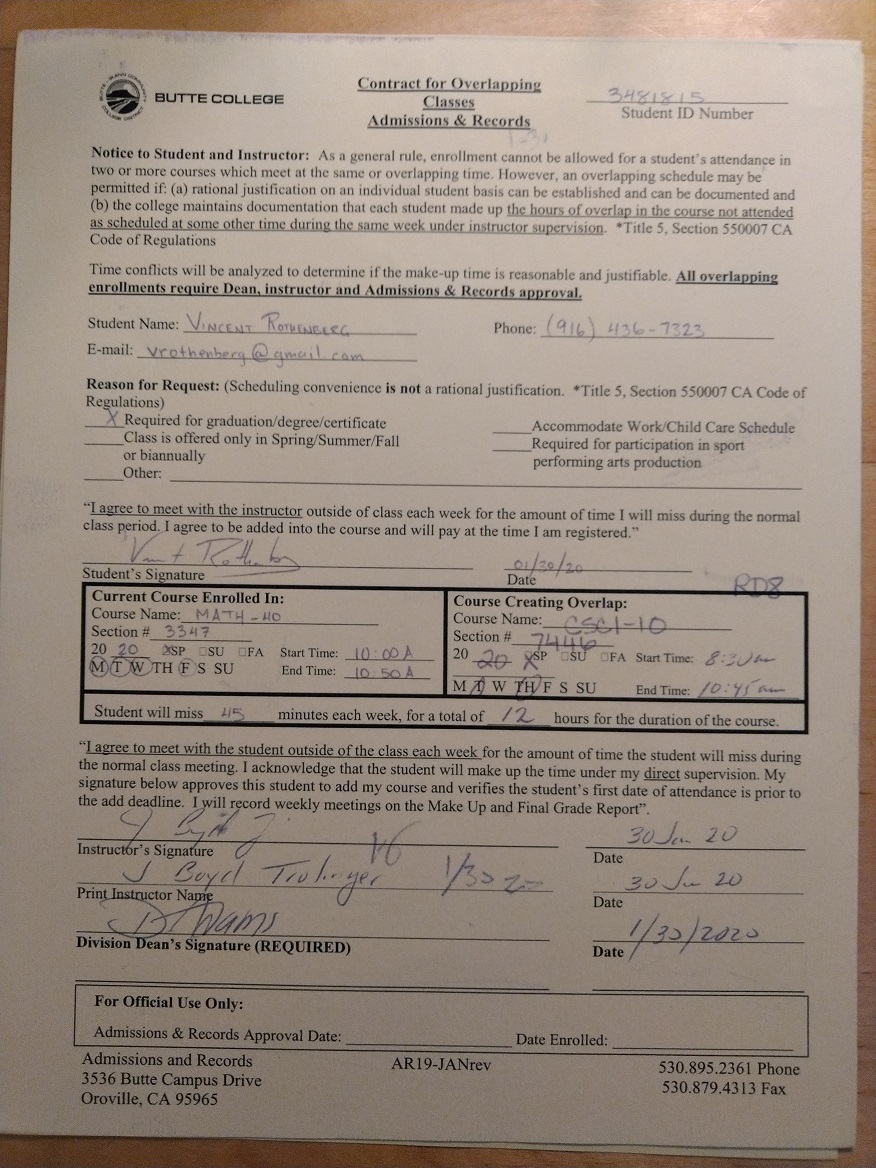 BUTTE COLLEGE
Contract for Overlapping
Classes
Admissions & Records
3481815
Student ID Number
Notice to Student and Instructor: As a general rule, enrollment cannot be allowed for a student's attendance in
two or more courses which meet at the same or overlapping time. However, an overlapping schedule may be
permitted if: (a) rational justification on an individual student basis can be established and can be documented and
(b) the college maintains documentation that each student made up the hours of overlap in the course not attended
as scheduled at some other time during the same week under instructor supervision. *Title 5, Section 550007 CA
Code of Regulations
Time conflicts will be analyzed to determine if the make-up time is reasonable and justifiable. All overlapping
enrollments require Dean, instructor and Admissions & Records approval.
Student Name: VINCENT ROTHENBERG Phone: (916) 436-7323
E-mail: vrothenberg@gmail.com
Reason for Request: (Scheduling convenience is not a rational justification. *Title 5, Section 550007 CA Code of
Regulations)
X Required for graduation/degree/certificate
Class is offered only in Spring/Summer/Fall
or biannually
Other:
Accommodate Work/Child Care Schedule
Required for participation in sport
performing arts production
"I agree to meet with the instructor outside of class each week for the amount of time I will miss during the normal
class period. I agree to be added into the course and will pay at the time I am registered."
01/30/20
Student's Signature Date
RD8
Current Course Enrolled In:
Course Name: MATH-40
Section # 3347
20 20 XSP SU FA Start Time: 10:00A
M T W TH F S SU End Time: 10:50A
Course Creating Overlap:
Course Name: CSCI-10
Section # 7446
20 20 X SP SU FA Start Time: 8:30am
M T W TH F S SU End Time: 10:45am
Student will miss 45 minutes each week, for a total of 12 hours for the duration of the course.
"I agree to meet with the student outside of the class each week for the amount of time the student will miss during
the normal class meeting. I acknowledge that the student will make up the time under my direct supervision. My
signature below approves this student to add my course and verifies the student's first date of attendance is prior to
the add deadline. I will record weekly meetings on the Make Up and Final Grade Report".
30 Jan 20
Instructor's Signature Date
J Boyd Trolinger 1/30 20 30 Jan 20
Print Instructor Name Date
1/30/2020
Division Dean's Signature (REQUIRED) Date
For Official Use Only:
Admissions & Records Approval Date: Date Enrolled:
Admissions and Records
3536 Butte Campus Drive
Oroville, CA 95965
AR19-JANrev
530.895.2361 Phone
530.879.4313 Fax